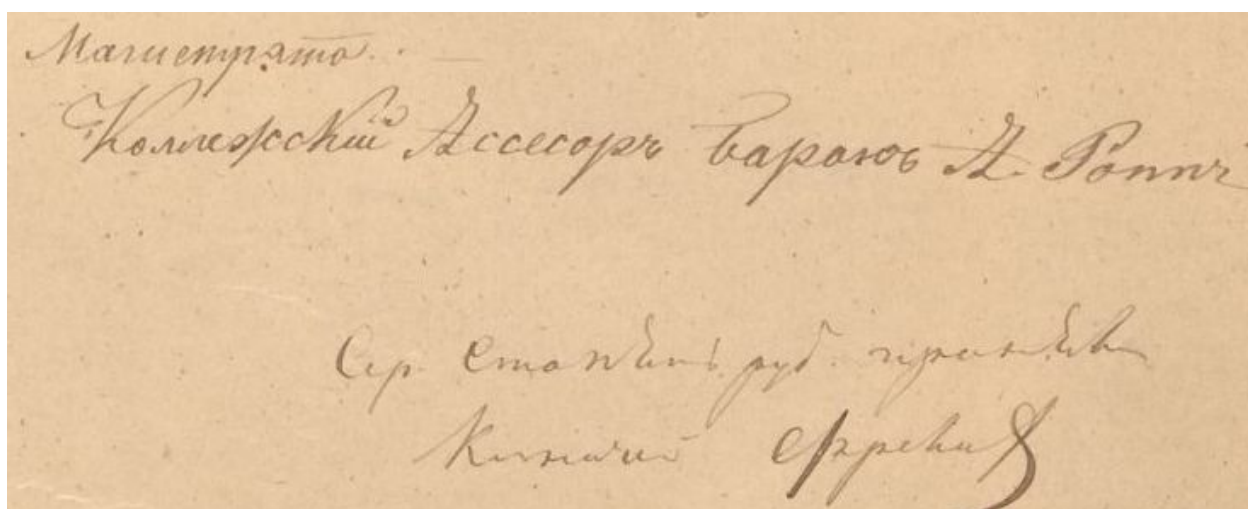 Магистрата.
Коллежскій Ассесоръ Баронъ А. Роппъ
Сер. сто руб. принялъ
Казначей